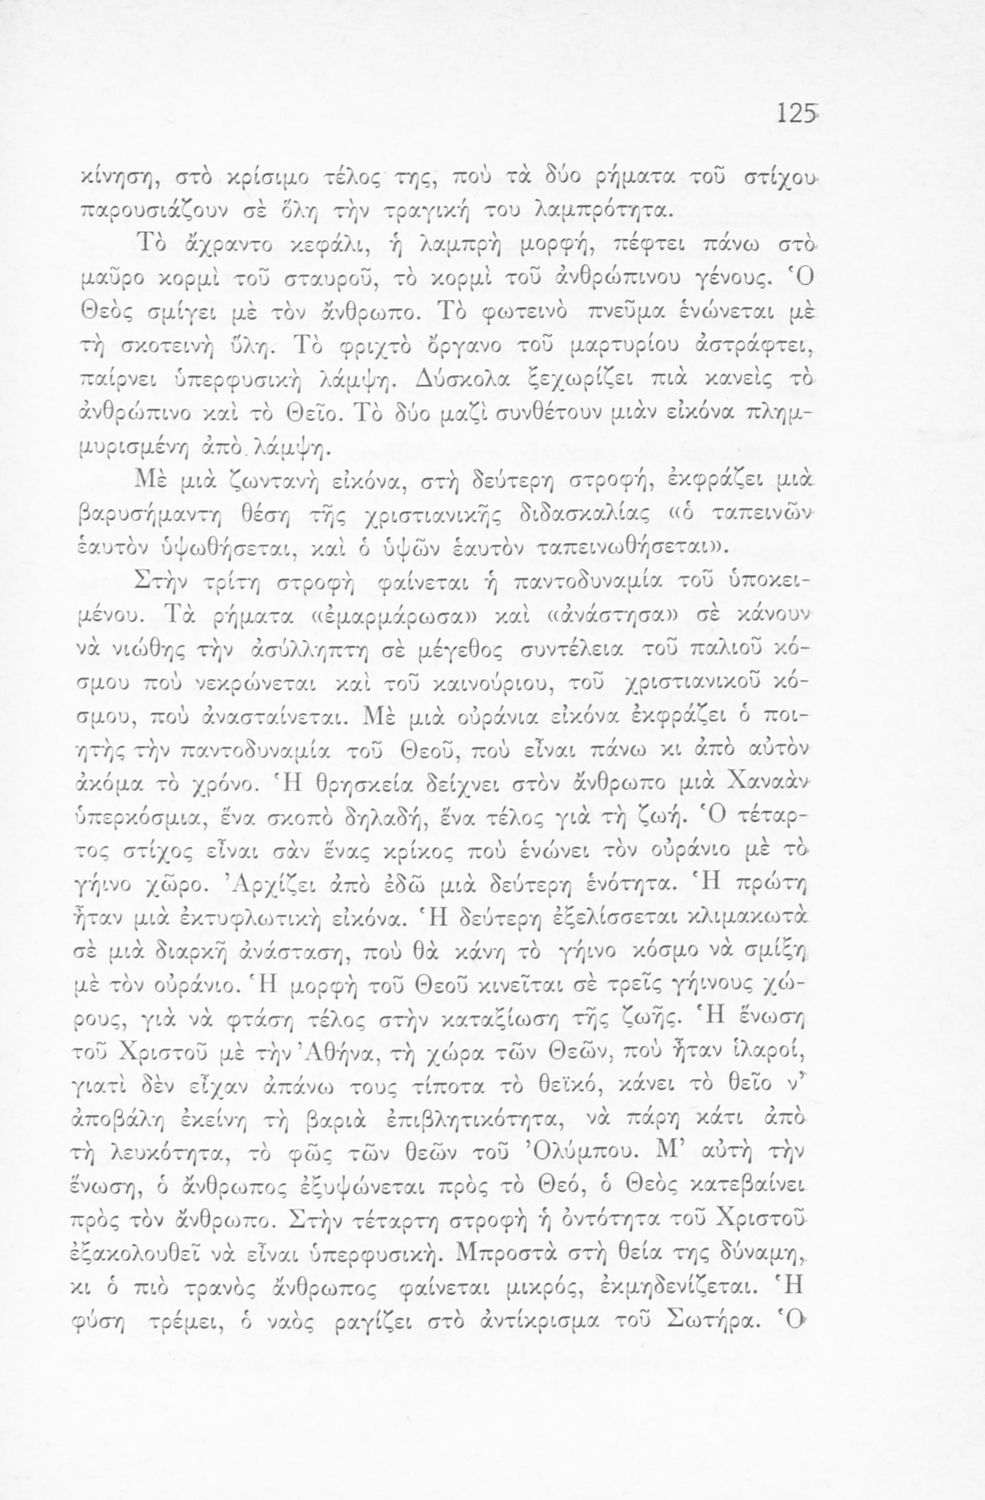 125
κίνηση, στὸ κρίσιμο τέλος της, ποὺ τὰ δύο ρήματα τοῦ στίχου
παρουσιάζουν σὲ ὅλη τὴν τραγική του λαμπρότητα.
Τὸ ἄχραντο κεφάλι, ἡ λαμπρὴ μορφή, πέφτει πάνω στὸ
μαῦρο κορμὶ τοῦ σταυροῦ, τὸ κορμὶ τοῦ ἀνθρώπινου γένους. Ὁ
Θεὸς σμίγει μὲ τὸν ἄνθρωπο. Τὸ φωτεινὸ πνεῦμα ἑνώνεται μὲ
τὴ σκοτεινὴ ὕλη. Τὸ φριχτὸ ὄργανο τοῦ μαρτυρίου ἀστράφτει,
παίρνει ὑπερφυσικὴ λάμψη. Δύσκολα ξεχωρίζει πιὰ κανεὶς τὸ
ἀνθρώπινο καὶ τὸ Θεῖο. Τὸ δύο μαζὶ συνθέτουν μιὰν εἰκόνα πλημ-
μυρισμένη ἀπὸ λάμψη.
Μὲ μιὰ ζωντανὴ εἰκόνα, στὴ δεύτερη στροφή, ἐκφράζει μιὰ
βαρυσήμαντη θέση τῆς χριστιανικῆς διδασκαλίας «ὁ ταπεινῶν
ἑαυτὸν ὑψωθήσεται, καὶ ὁ ὑψῶν ἑαυτὸν ταπεινωθήσεται».
Στὴν τρίτη στροφὴ φαίνεται ἡ παντοδυναμία τοῦ ὑποκει-
μένου. Τὰ ρήματα «ἐμαρμάρωσα» καὶ «ἀνάστησα» σὲ κάνουν
νὰ νιώθης τὴν ἀσύλληπτη σὲ μέγεθος συντέλεια τοῦ παλιοῦ κό-
σμου ποὺ νεκρώνεται καὶ τοῦ καινούριου, τοῦ χριστιανικοῦ κό-
σμου, ποὺ ἀνασταίνεται. Μὲ μιὰ οὐράνια εἰκόνα ἐκφράζει ὁ ποι-
ητὴς τὴν παντοδυναμία τοῦ Θεοῦ, ποὺ εἶναι πάνω κι ἀπὸ αὐτὸν
ἀκόμα τὸ χρόνο. Ἡ θρησκεία δείχνει στὸν ἄνθρωπο μιὰ Χαναὰν
ὑπερκόσμια, ἕνα σκοπὸ δηλαδή, ἕνα τέλος γιὰ τὴ ζωή. Ὁ τέταρ-
τος στίχος εἶναι σὰν ἕνας κρίκος ποὺ ἑνώνει τὸν οὐράνιο μὲ τὸ
γήινο χῶρο. Ἀρχίζει ἀπὸ ἐδῶ μιὰ δεύτερη ἑνότητα. Ἡ πρώτη
ἦταν μιὰ ἐκτυφλωτικὴ εἰκόνα. Ἡ δεύτερη ἐξελίσσεται κλιμακωτὰ
σὲ μιὰ διαρκῆ ἀνάσταση, ποὺ θὰ κάνη τὸ γήινο κόσμο νὰ σμίξη
μὲ τὸν οὐράνιο. Ἡ μορφὴ τοῦ Θεοῦ κινεῖται σὲ τρεῖς γήινους χώ-
ρους, γιὰ νὰ φτάση τέλος στὴν καταξίωση τῆς ζωῆς. Ἡ ἕνωση
τοῦ Χριστοῦ μὲ τὴν Ἀθήνα, τὴ χώρα τῶν Θεῶν, ποὺ ἦταν ἱλαροί,
γιατὶ δὲν εἶχαν ἀπάνω τους τίποτα τὸ θεϊκό, κάνει τὸ θεῖο ν'
ἀποβάλη ἐκείνη τὴ βαριὰ ἐπιβλητικότητα, νὰ πάρη κάτι ἀπὸ
τὴ λευκότητα, τὸ φῶς τῶν θεῶν τοῦ Ὀλύμπου. Μ' αὐτὴ τὴν
ἕνωση, ὁ ἄνθρωπος ἐξυψώνεται πρὸς τὸ Θεό, ὁ Θεὸς κατεβαίνει
πρὸς τὸν ἄνθρωπο. Στὴν τέταρτη στροφὴ ἡ ὀντότητα τοῦ Χριστοῦ
ἐξακολουθεῖ νὰ εἶναι ὑπερφυσική. Μπροστὰ στὴ θεία της δύναμη,
κι ὁ πιὸ τρανὸς ἄνθρωπος φαίνεται μικρός, ἐκμηδενίζεται. Ἡ
φύση τρέμει, ὁ ναὸς ραγίζει στὸ ἀντίκρισμα τοῦ Σωτήρα. Ὁ